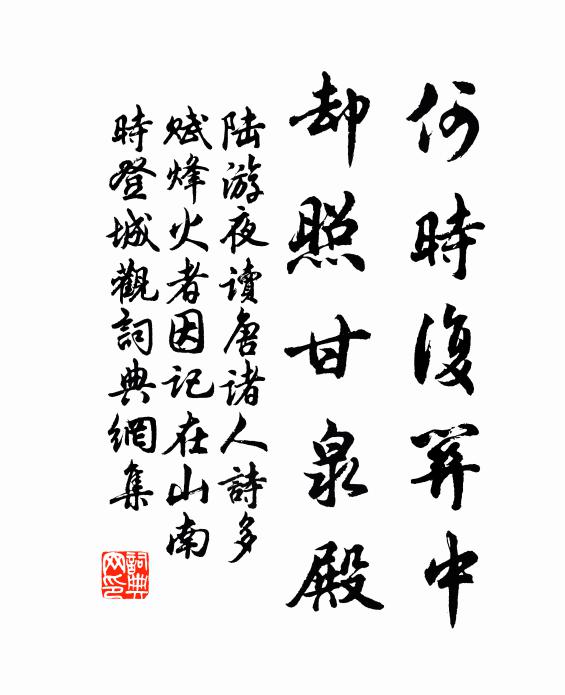 何時復關中
却照甘泉殿
陆游夜讀唐諸人詩多
賦烽火者因記在山南
時登城觀詞典網集
詞典网印